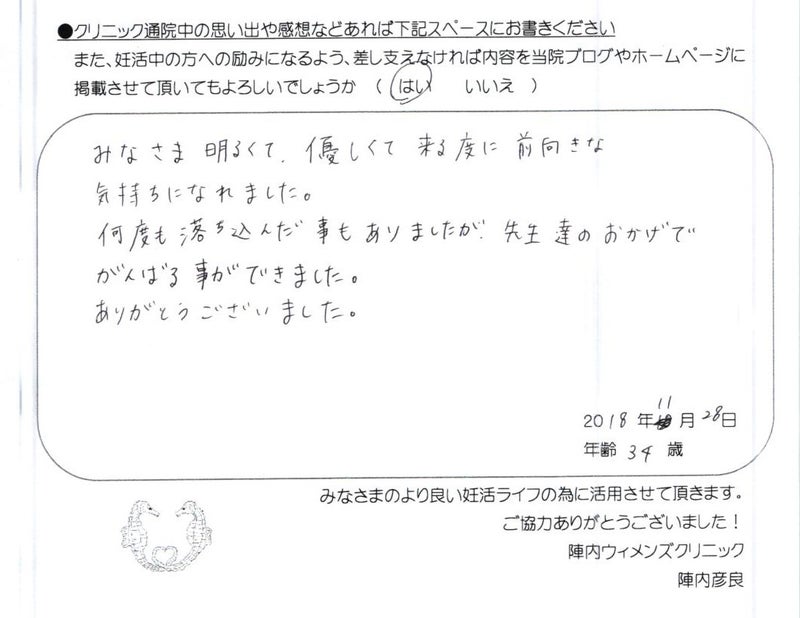 ●クリニック通院中の思い出や感想などあれば下記スペースにお書きください
また、妊活中の方への励みになるよう、差し支えなければ内容を当院ブログやホームページに
掲載させて頂いてもよろしいでしょうか ( はい いいえ )
みなさま 明るくて、優しくて 来る度に 前向きな
気持ちになれました。
何度も落ち込んだ事もありましたが、先生達のおかげで
がんばる事ができました。
ありがとうございました。
2018年11月28日
年齢 34 歳
みなさまのより良い妊活ライフの為に活用させて頂きます。
ご協力ありがとうございました！
陣内ウィメンズクリニック
陣内彦良